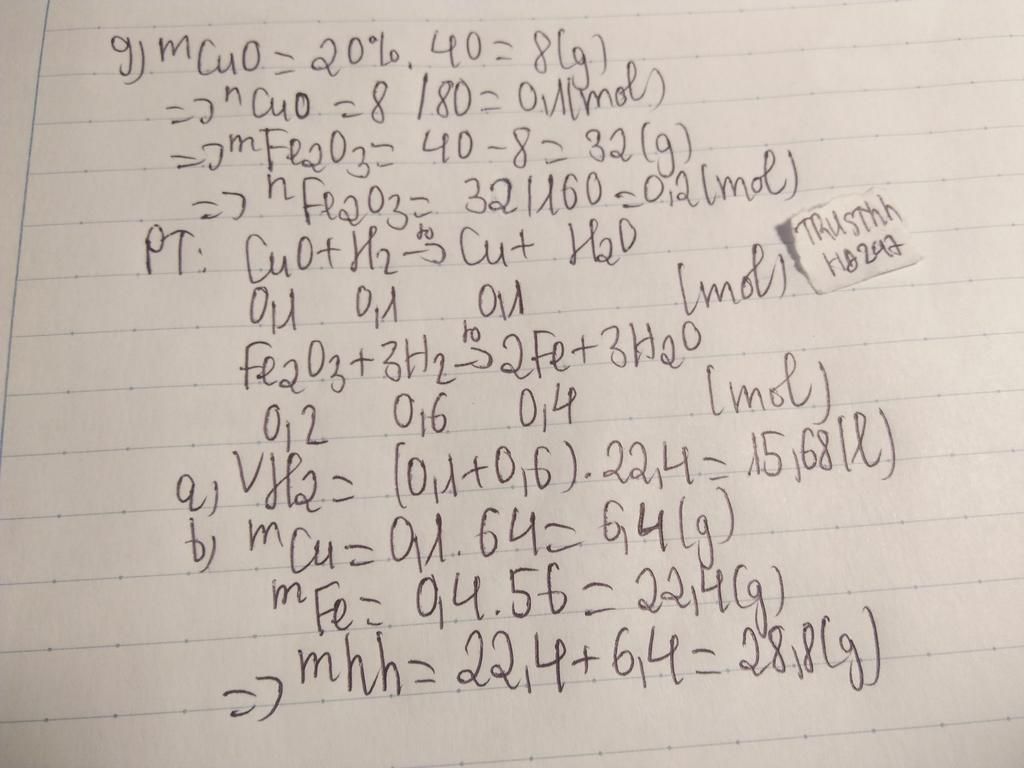 g) mCuO = 20%. 40 = 8(g)
=> nCuO = 8 /80 = 0,1(mol)
=> mFe2O3 = 40 - 8 = 32(g)
=> nFe2O3 = 32/160 = 0,2(mol)
PT: CuO + H2 -to-> Cu + H2O
0,1 0,1 0,1 (mol)
Fe2O3 + 3H2 -to-> 2Fe + 3H2O
0,2 0,6 0,4 (mol)
a, VH2 = (0,1+0,6). 22,4 = 15,68(l)
b) mCu = 0,1. 64 = 6,4(g)
mFe = 0,4.56 = 22,4(g)
=> mhh = 22,4 + 6,4 = 28,8(g)